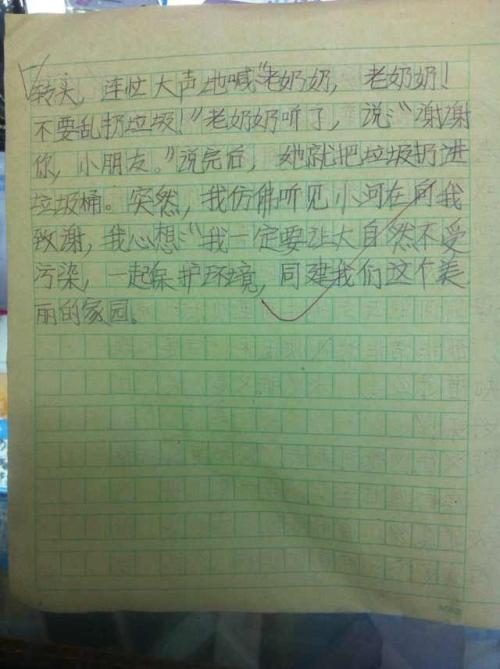 转头，连忙大声地喊：“老奶奶，老奶奶！
不要乱扔垃圾！”老奶奶听了，说：“谢谢
你，小朋友。”说完后，她就把垃圾扔进
垃圾桶。突然，我仿佛听见小河在向我
致谢，我心想：“我一定要让大自然不受
污染，一起保护环境，同建我们这个美
丽的家园。